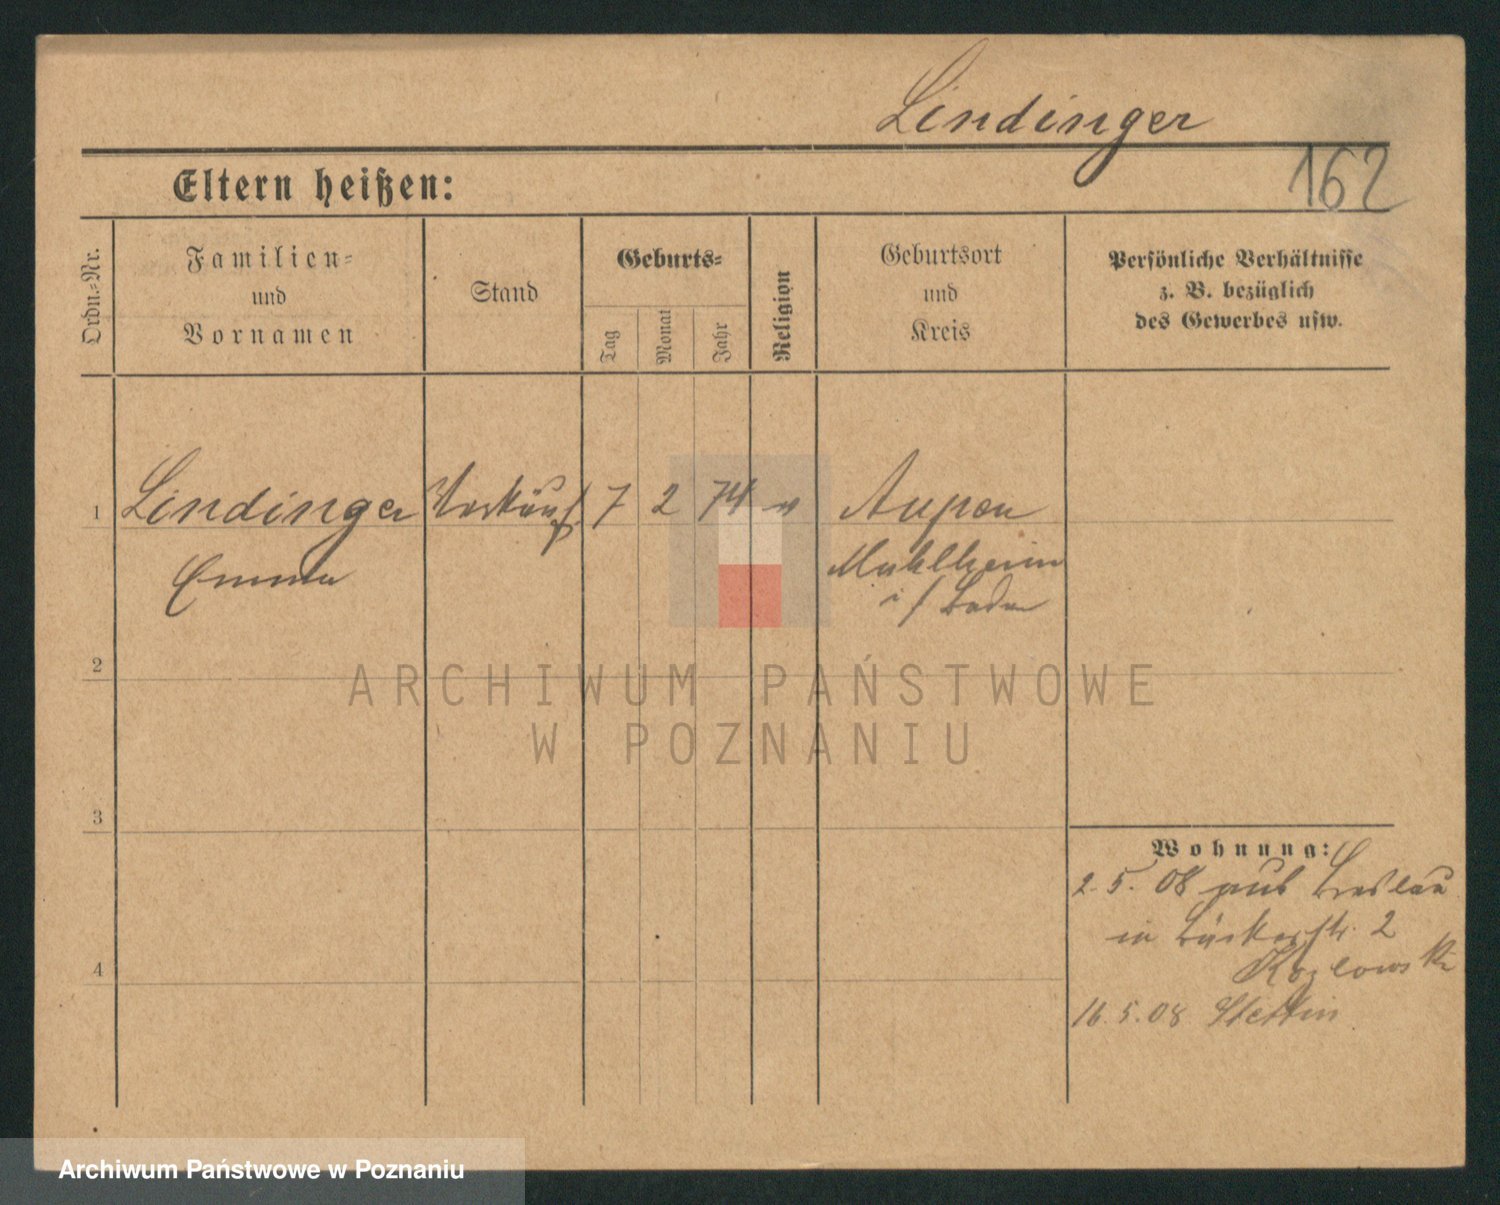 Lindinger
162
Eltern heißen:
Ordn.-Nr.
Familien-
und
Vornamen
Stand
Geburts-
Tag
Monat
Jahr
Religion
Geburtsort
und
Kreis
Persönliche Verhältnisse
z. B. bezüglich
des Gewerbes usw.
1 Lindinger Verkäuf. 7 2 74
Emma
Mühlheim
i/ Baden
2
3
4
Wohnung:
2. 5. 08 aus Breslau
in Bäckerstr. 2
Kozlowski
16. 5. 08 Stettin
ARCHIWUM PAŃSTWOWE
W POZNANIU
Archiwum Państwowe w Poznaniu